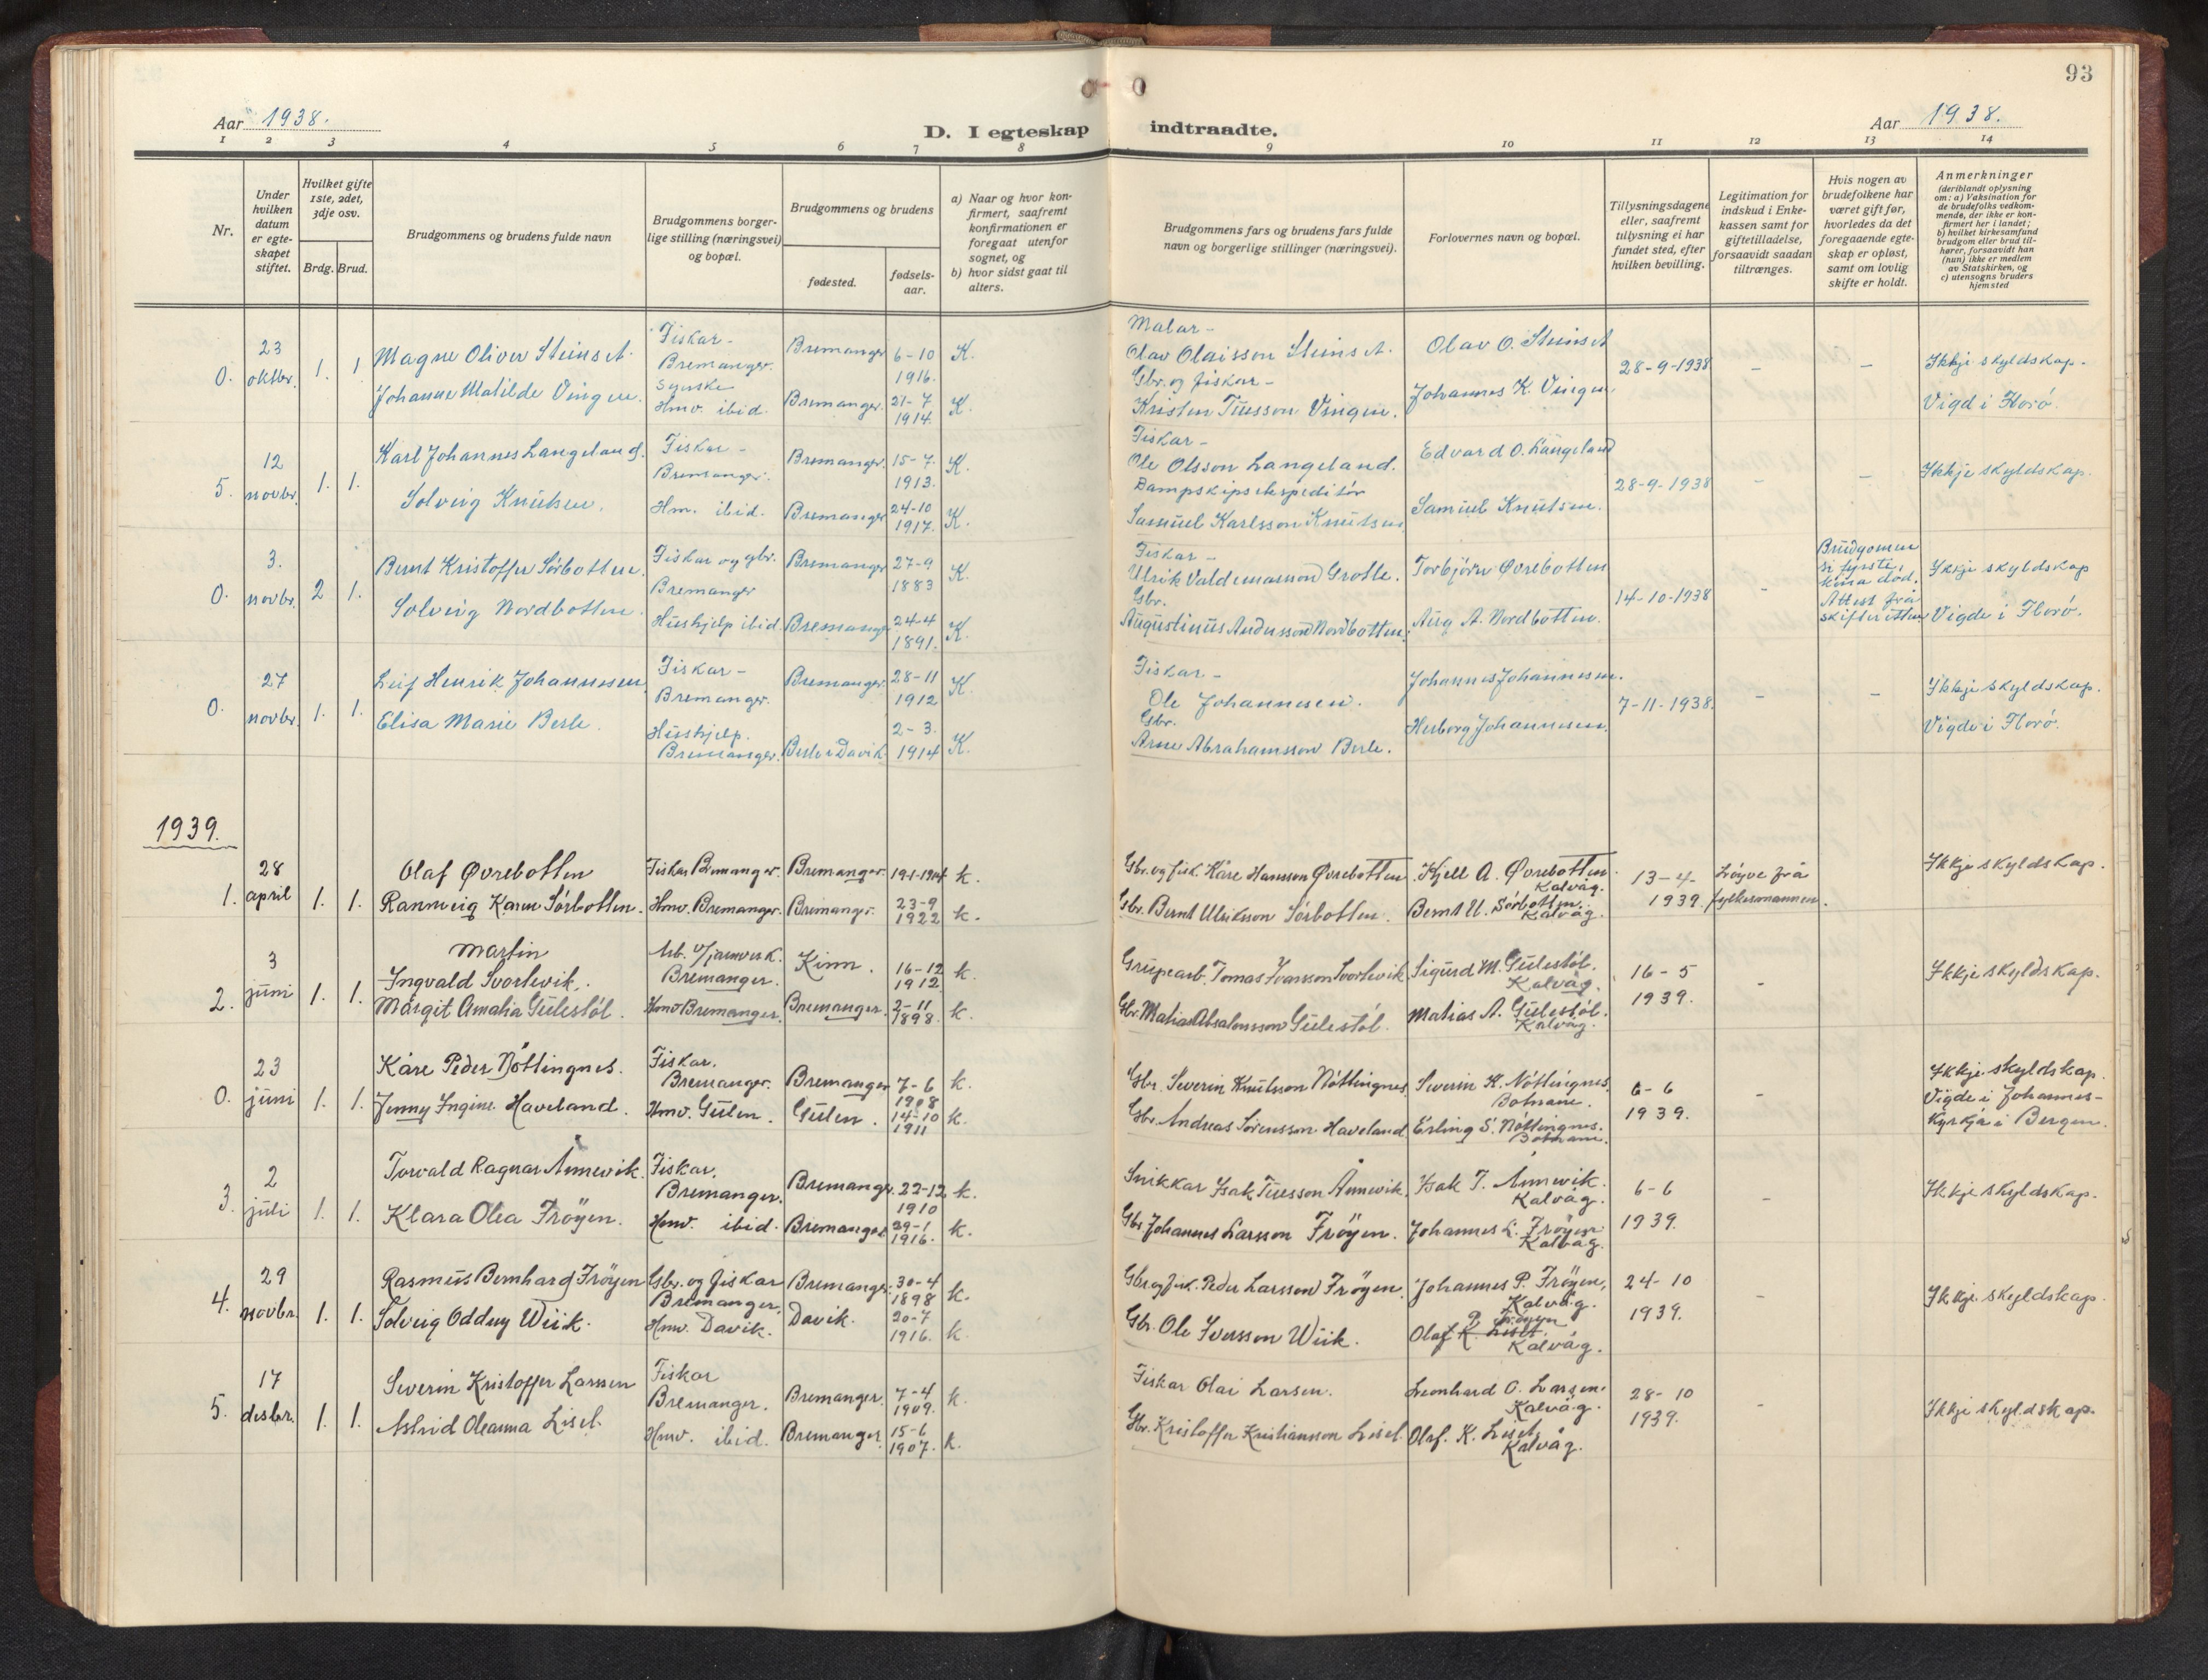 93
Aar 1938.
D. I egteskap indtraadte.
Aar 1938.
1 2 3 4 5 6 7 8 9 10 11 12 13 14
Nr.
Under hvilken datum er egte-skapet stiftet.
Hvilket gifte 1ste, 2det, 3dje osv.
Brdg. Brud.
Brudgommens og brudens fulde navn
Brudgommens borger-lige stilling (næringsvei) og bopæl.
Brudgommens og brudens
fødested.
fødsels-aar.
a) Naar og hvor kon-firmert, saafremt konfirmationen er foregaat utenfor sognet, og
b) hvor sidst gaat til alters.
Brudgommens fars og brudens fars fulde navn og borgerlige stillinger (næringsvei).
Forlovernes navn og bopæl.
Tillysningsdagene eller, saafremt tillysning ei har fundet sted, efter hvilken bevilling.
Legitimation for indskud i Enke-kassen samt for giftetilladelse, forsaavidt saadan tiltrænges.
Hvis nogen av brudefolkene har været gift før, hvorledes da det foregaaende egte-skap er opløst, samt om lovlig skifte er holdt.
Anmerkninger (deriblandt oplysning om: a) Vaksination for de brudefolks vedkom-mende, der ikke er kon-firmert her i landet; b) hvilket kirkesamfund brudgom eller brud til-hører, forsaavidt han (hun) ikke er medlem av Statskirken, og c) utensogns bruders hjemsted
0. 23 oktbr. 1. 1 Magne Oliver Steinset. Fiskar - Bremanger. Bremanger 6-10 1916. K. Malar - Olav Olaisson Steinset. Olav O. Steinset 28-9-1938 - - Ikkje skyldskap.
Johanne Matilde Vingen. Hmv. ibid. Bremanger. 21-7 1914. K. Gbr. og fiskar - Kristen Tuesson Vingen. Johannes K. Vingen. Vigd i Florø.
5. 12 novbr. 1. 1. Karl Johannes Langeland. Fiskar - Bremanger. Bremanger. 15-7 1913. K. Fiskar - Ole Olsson Langeland. Edvard O. Langeland 28-9-1938 - - Ikkje skyldskap.
Solveig Knutsen. Hm. ibid. Bremanger 24-10 1917. K. Dampskipsekspeditør Samuel Karlsson Knutsen Samuel Knutsen.
0. 3. novbr. 2 1. Bernt Kristoffer Sørbotten. Fiskar og gbr. Bremanger Bremanger 27-9 1883 K. Fiskar - Ulrik Valdemarsson Grotle. Torbjørn Øvrebotten 14-10-1938 - Brudgomen si fyrste kona død. Attest frå skifteretten Ikkje skyldskap
Solveig Nordbotten. Hushjelp ibid. Bremanger 24-4 1891. K. Gbr. Augustinus Andersson Nordbotten. Aug A. Nordbotten. Vigde i Florø.
0. 27 novbr. 1. 1. Leif Henrik Johannesen Fiskar - Bremanger. Bremanger. 28-11 1912 K. Fiskar - Ole Johannesen. Johannes Johannesen. 7-11-1938. - - Ikkje skyldskap.
Elisa Marie Berle. Hushjelp. Bremanger. Berle i Davik 2-3. 1914 K. Gbr. Arne Abrahamsson Berle. Herborg Johannesen. Vigde i Florø.
1939.
1. 28 april 1. 1. Olaf Øvrebotten Fiskar Bremanger. Bremanger. 19-1-1914 k. Gbr. og fisk. Kåre Hansson Øvrebotten Kjell A. Øvrebotten. Kalvåg. 13-4- 1939. Løyve frå fylkesmannen. Ikkje skyldskap.
Rannveig Karen Sørbotten. Hmv. Bremanger. Bremanger. 23-9 1922 k. Gbr. Bernt Ulriksson Sørbotten. Bernt U. Sørbotten. Kalvåg.
2. 3 juni 1. 1. Martin Ingvald Svortevik. Arb. v/jarnverk. Bremanger. Kinn. 16-12 1912 k. Grupearb. Tomas Ivarsson Svortevik Sigurd M. Gulestøl. Kalvåg. 16-5 1939. - Ikkje skyldskap.
Margit Amalia Gulestøl. Hmv Bremanger. Bremanger. 2-11 1898. k. Gbr. Matias Absalonsson Gulestøl. Matias A. Gulestøl. Kalvåg.
0. 23 juni 1. 1. Kåre Peder Nøttingnes. Fiskar. Bremanger. Bremanger 7-6 1908 k. Gbr. Severin Knutsson Nøttingnes Severin K. Nøttingnes Botnane. 6-6 1939. - Ikkje skyldskap.
Jenny Ingine Haveland. Hmv. Gulen. Gulen. 14-10 1911 k. Gbr. Andreas Sørensson Haveland Erling S. Nøttingnes. Botnane. Vigde i Johannes-kyrkja i Bergen.
3. 2 juli 1. 1. Torvald Ragnar Ånnevik. Fiskar. Bremanger. Bremanger. 22-12 1910 k. Snikkar Isak Tuesson Ånnevik. Isak T. Ånnevik. Kalvåg. 6-6 1939. - Ikkje skyldskap.
Klara Olea Frøyen. Hmv. ibid. Bremanger 29-1 1916. k. Gbr. Johannes Larsson Frøyen. Johannes L. Frøyen. Kalvåg.
4. 29 novbr. 1. 1. Rasmus Bernhard Frøyen Gbr. og fiskar Bremanger. Bremanger. 30-4 1898 k. Gbr og fisk. Peder Larsson Frøyen. Johannes P. Frøyen. Kalvåg. 24-10 1939. - Ikkje skyldskap.
Solveig Oddny Wiik. Hmv. Davik. Davik. 20-7 1916. k. Gbr. Ole Iversson Wiik. Olaf K. Liset. P. Frøyen Kalvåg.
5. 17 desbr. 1. 1. Severin Kristoffer Larssen Fiskar Bremanger. Bremanger. 7-4 1909. k. Fiskar Olai Larsen. Leonhard O. Larsen. Kalvåg. 28-10 1939. - Ikkje skyldskap.
Astrid Oleanna Liset. Hmv. ibid. Bremanger 15-6 1907. k. Gbr. Kristoffer Kristiansson Liset. Olaf. K. Liset. Kalvåg.